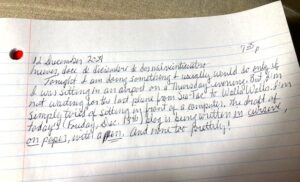 12 December 2021
jueves, doce de diciembre de dos mil veinticuatro
Tonight I am doing something I usually would do only if
I was sitting in an airport on a Thursday evening. But I'm
not waiting for the last plane from Sea-Tac to Walla Walla. I'm
simply tired of sitting in front of a computer. The draft of
today's (Friday, Dec. 13th) blog is being written in cursive,
on paper, with a pen. And none too prettily!